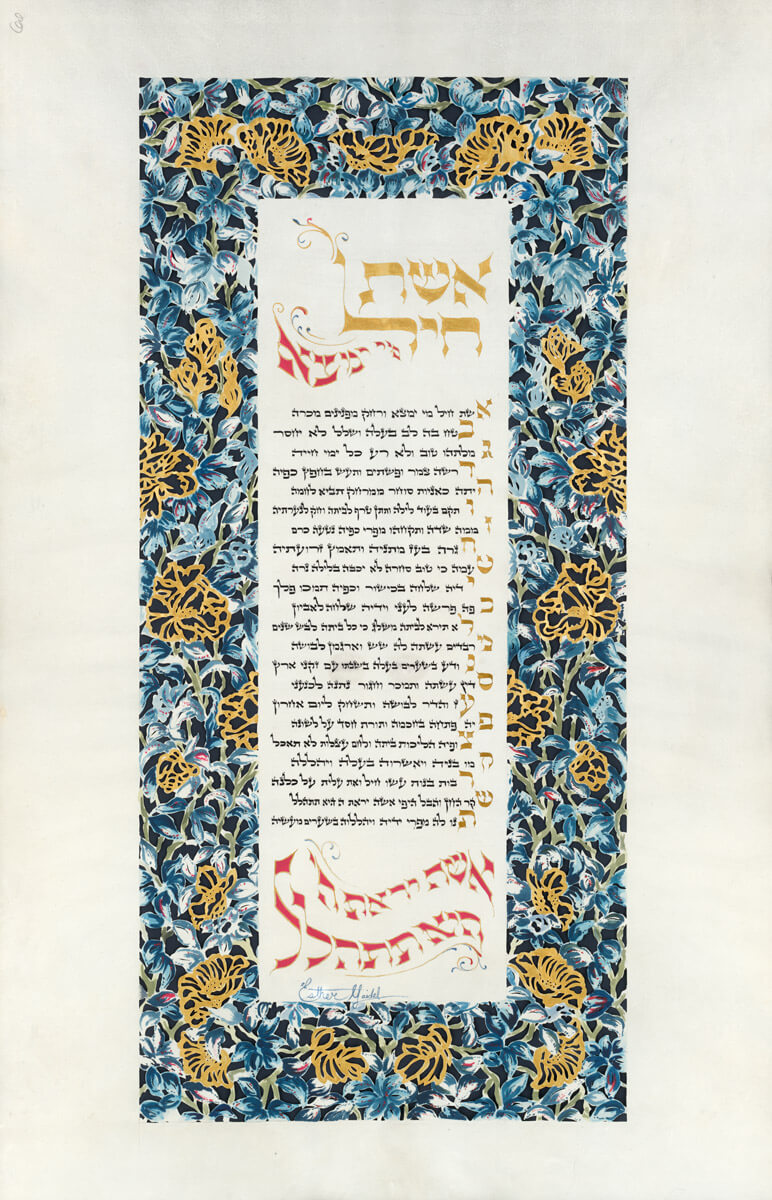 אשת
חיל
מי ימצא
אשת חיל מי ימצא ורחק מפנינים מכרה
בטח בה לב בעלה ושלל לא יחסר
גמלתהו טוב ולא רע כל ימי חייה
דרשה צמר ופשתים ותעש בחפץ כפיה
היתה כאניות סוחר ממרחק תביא לחמה
ותקם בעוד לילה ותתן טרף לביתה וחק לנערתיה
זממה שדה ותקחהו מפרי כפיה נטעה כרם
חגרה בעז מתניה ותאמץ זרועתיה
טעמה כי טוב סחרה לא יכבה בלילה נרה
ידיה שלחה בכישור וכפיה תמכו פלך
כפה פרשה לעני וידיה שלחה לאביון
לא תירא לביתה משלג כי כל ביתה לבש שנים
מרבדים עשתה לה שש וארגמן לבושה
נודע בשערים בעלה בשבתו עם זקני ארץ
סדין עשתה ותמכר וחגור נתנה לכנעני
עז והדר לבושה ותשחק ליום אחרון
פיה פתחה בחכמה ותורת חסד על לשונה
צופיה הליכות ביתה ולחם עצלות לא תאכל
קמו בניה ויאשרוה בעלה ויהללה
רבות בנות עשו חיל ואת עלית על כלנה
שקר החן והבל היפי אשה יראת ה היא תתהלל
תנו לה מפרי ידיה ויהללוה בשערים מעשיה
אשת יראת ה
היא תתהלל
Esther